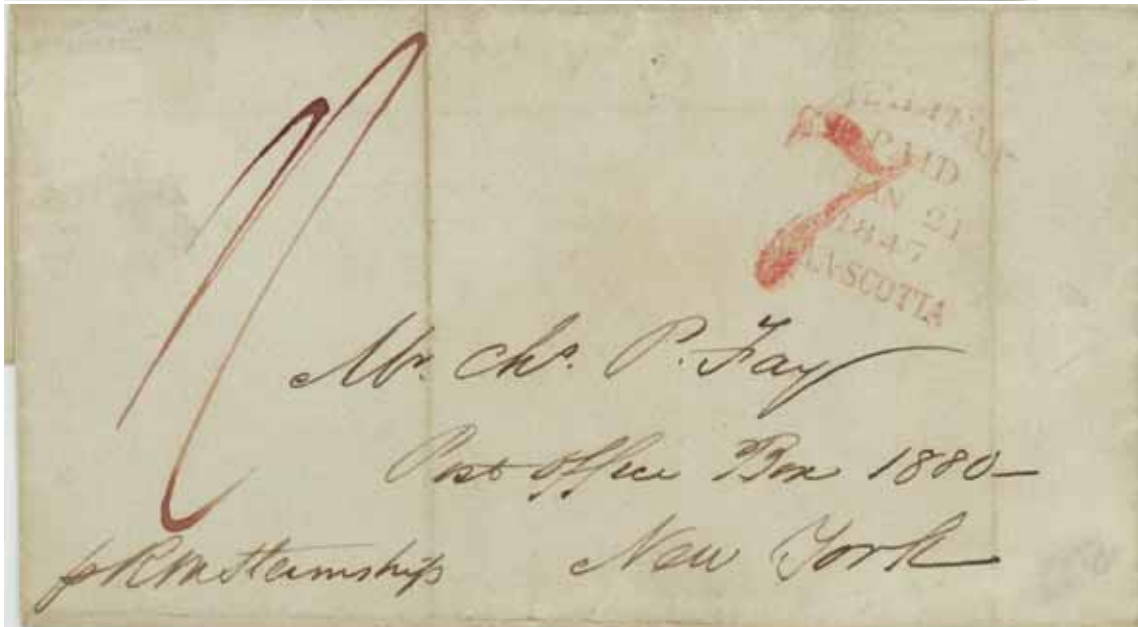 HALIFAX
PAID
JAN 21
1847
NOVA-SCOTIA
7
Mr. Chs. P. Fay
Post Office Box 1880-
New York
p RM Steamship